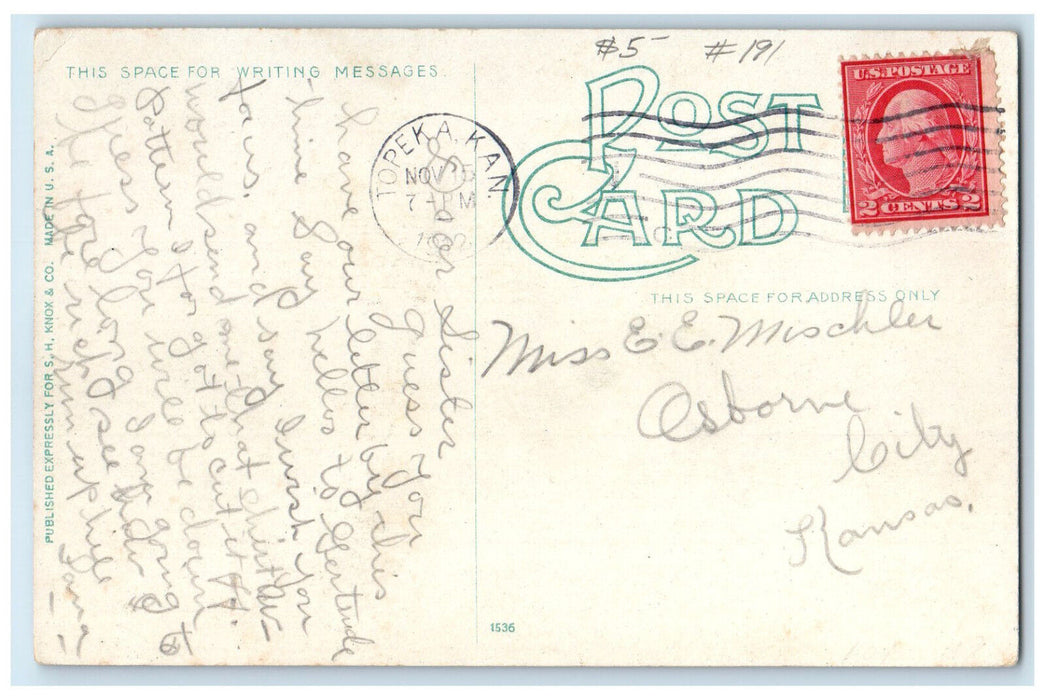 $5 #191
THIS SPACE FOR WRITING MESSAGES.
POST CARD
U.S. POSTAGE
2 CENTS 2
TOPEKA, KAN.
NOV 15
7 - PM
THIS SPACE FOR ADDRESS ONLY
Miss E. E. Mischler
Osborne
City
Kansas.
Dear Sister
Guess you
have our letter by this
time say hello to Gertrude
for us. and say I wish you
would send me that shirt
Pattern I forgot to cut it
Guess you will be down
before long Jane going to
see
Jana
PUBLISHED EXPRESSLY FOR S. H. KNOX & CO. MADE IN U. S. A.
1536